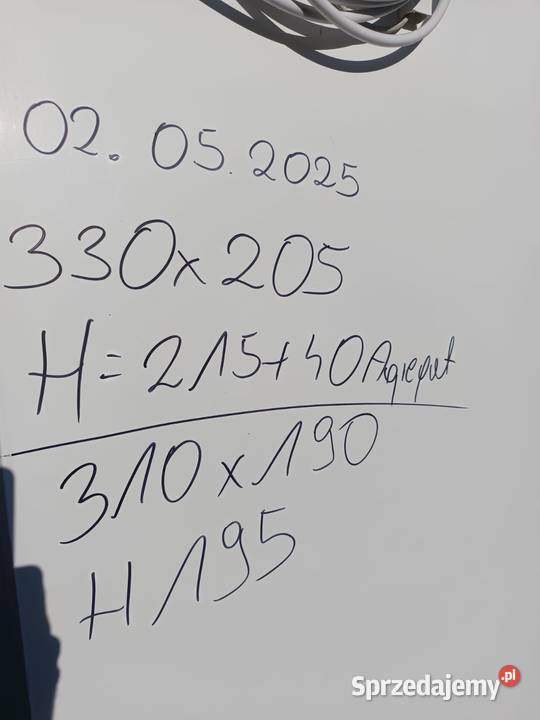 02.05.2025
330x205
H=215+40 Agregat
310x190
H 195
Sprzedajemy.pl